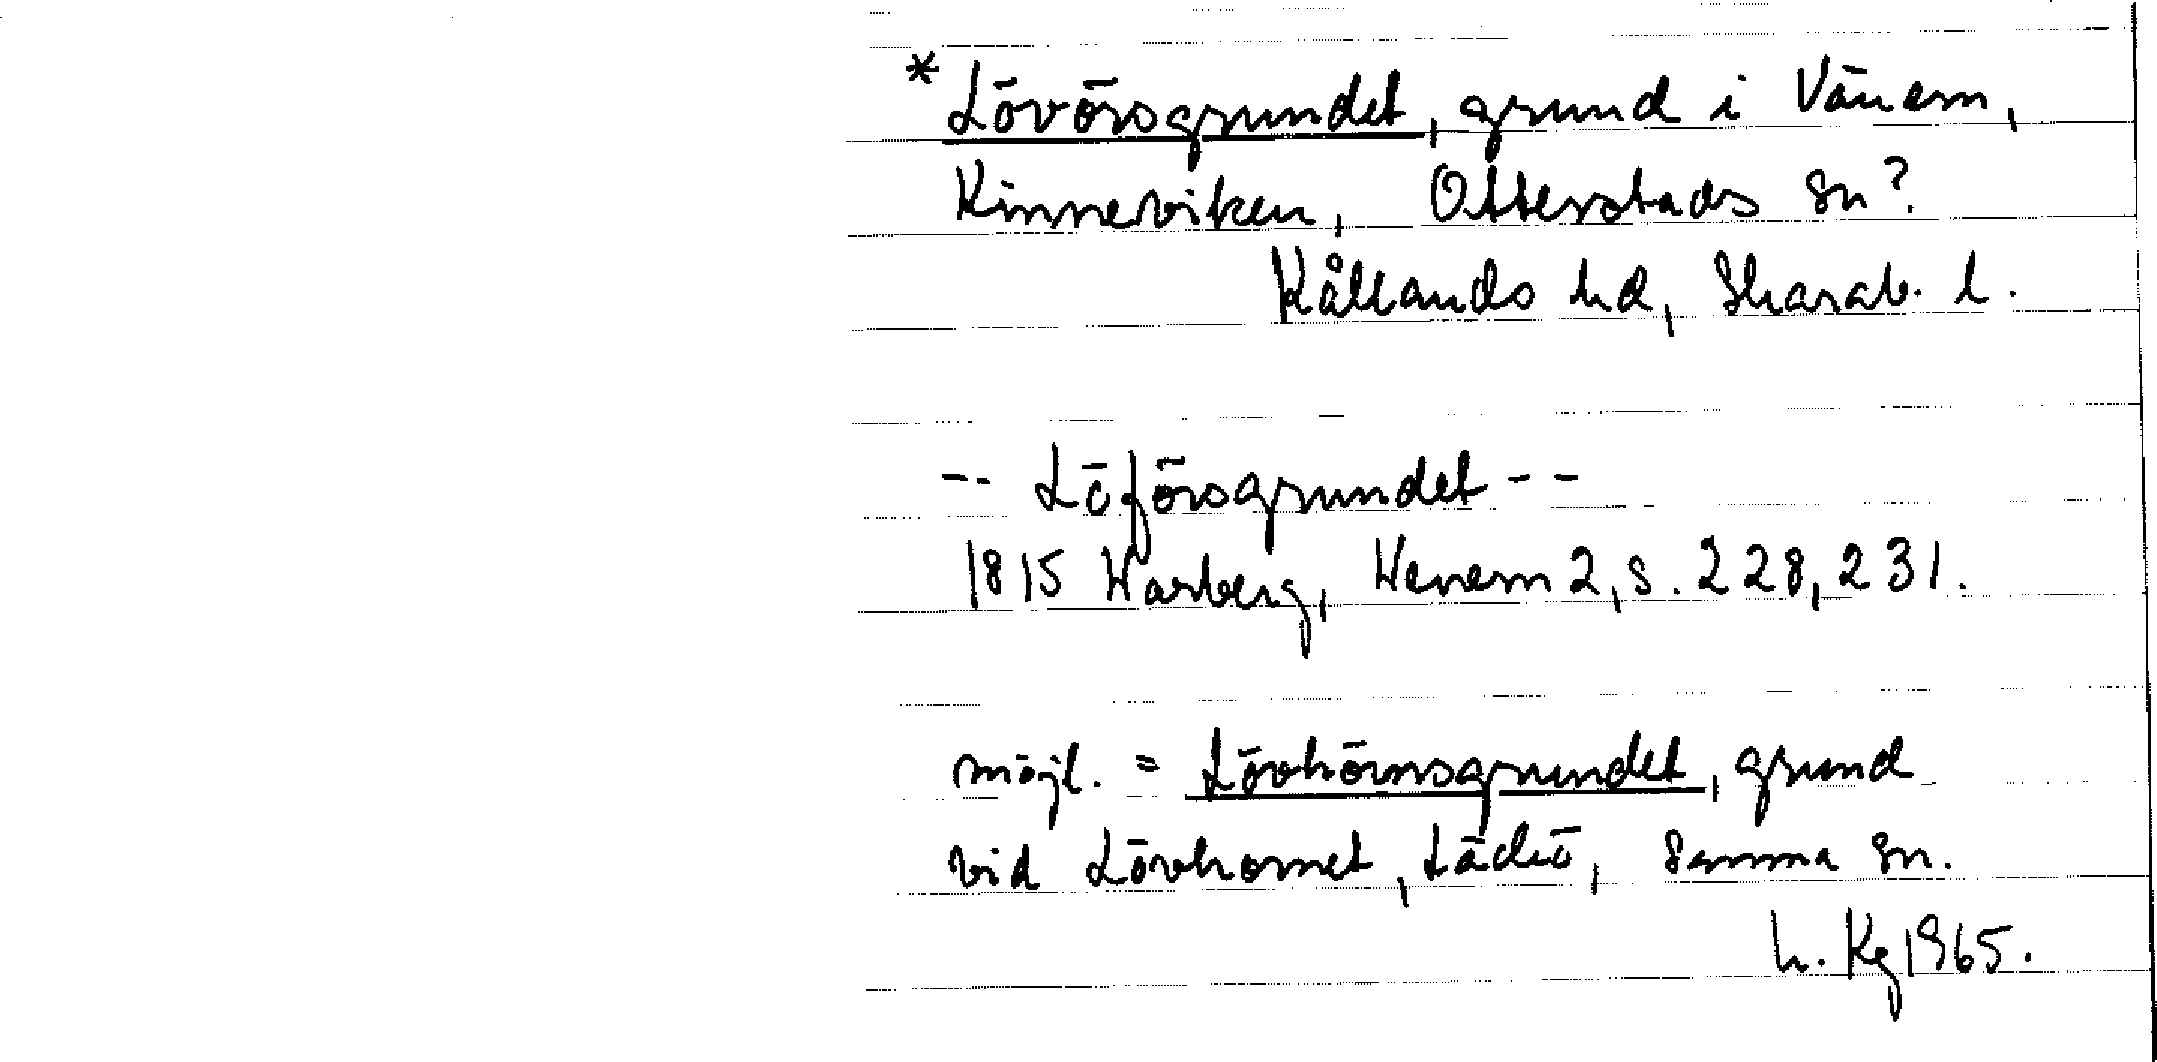 * Lövörsgrundet, grund i Vänern,
Kinneviken, Otterstads sn?
Kållands hd, Skarab. l.
-- Löförsgrundet --
1815 Warberg, Wenern 2, s. 228, 231.
möjl. = Lövhörnsgrundet, grund
vid Lövhornet, Lädiö, samma sn.
h. Kg 1965.